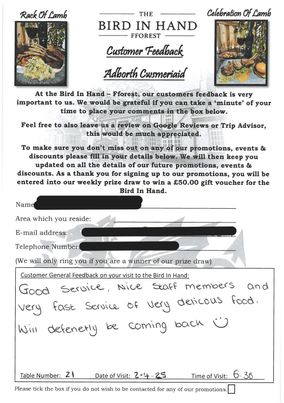 Rack Of Lamb
Celebration Of Lamb
THE
BIRD IN HAND
FFOREST
Customer Feedback
Adborth Cwsmeriaid
At the Bird In Hand – Fforest, our customers feedback is very
important to us. We would be grateful if you can take a 'minute' of your
time to place your comments in the box below.
Feel free to also leave us a review on Google Reviews or Trip Advisor,
this would be much appreciated.
To make sure you don't miss out on any of our promotions, events &
discounts please fill in your details below. We will then keep you
updated on all the details of our future promotions, events &
discounts. As a thank you for signing up to our promotions, you will be
entered into our weekly prize draw to win a £50.00 gift voucher for the
Bird In Hand.
Name
Area which you reside:
E-mail address:
Telephone Number
(We will only ring you if you are a winner of our prize draw)
Customer General Feedback on your visit to the Bird In Hand:
Good Service, Nice Staff members and
very fast service of very delicous food.
Will defenetly be coming back
Table Number: 21 Date of Visit: 2-4-25 Time of Visit: 6-30
Please tick the box if you do not wish to be contacted for any of our promotions.